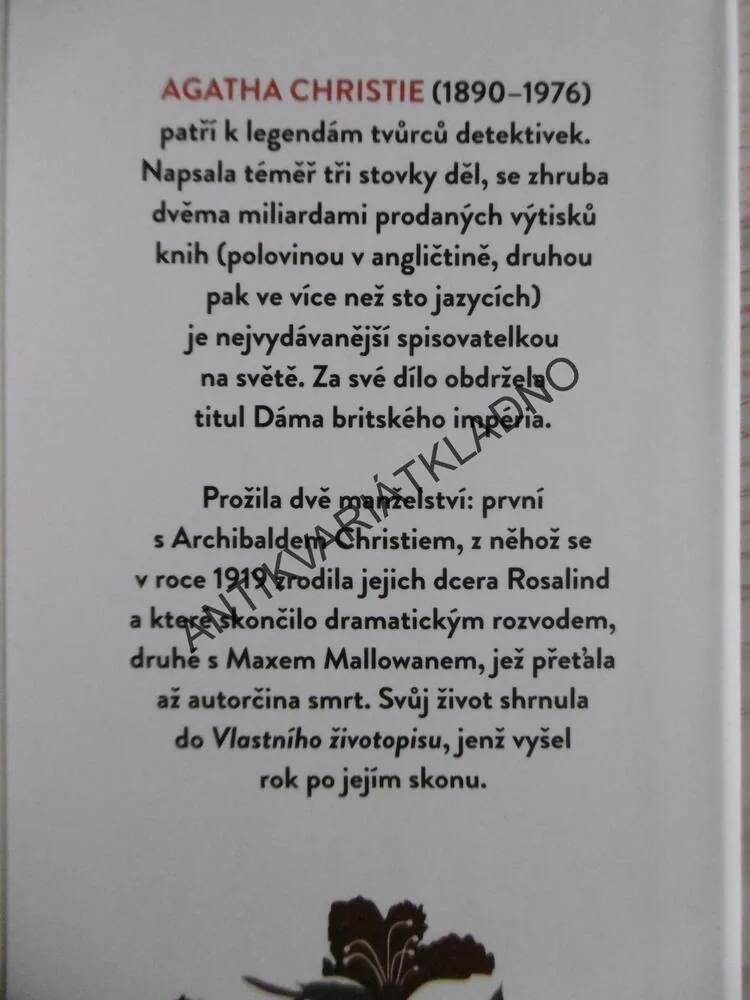 AGATHA CHRISTIE (1890–1976)
patří k legendám tvůrců detektivek.
Napsala téměř tři stovky děl, se zhruba
dvěma miliardami prodaných výtisků
knih (polovinou v angličtině, druhou
pak ve více než sto jazycích)
je nejvydávanější spisovatelkou
na světě. Za své dílo obdržela
titul Dáma britského impéria.
Prožila dvě manželství: první
s Archibaldem Christiem, z něhož se
v roce 1919 zrodila jejich dcera Rosalind
a které skončilo dramatickým rozvodem,
druhé s Maxem Mallowanem, jež přeťala
až autorčina smrt. Svůj život shrnula
do Vlastního životopisu, jenž vyšel
rok po jejím skonu.
ANTIKVARIÁTKLADNO